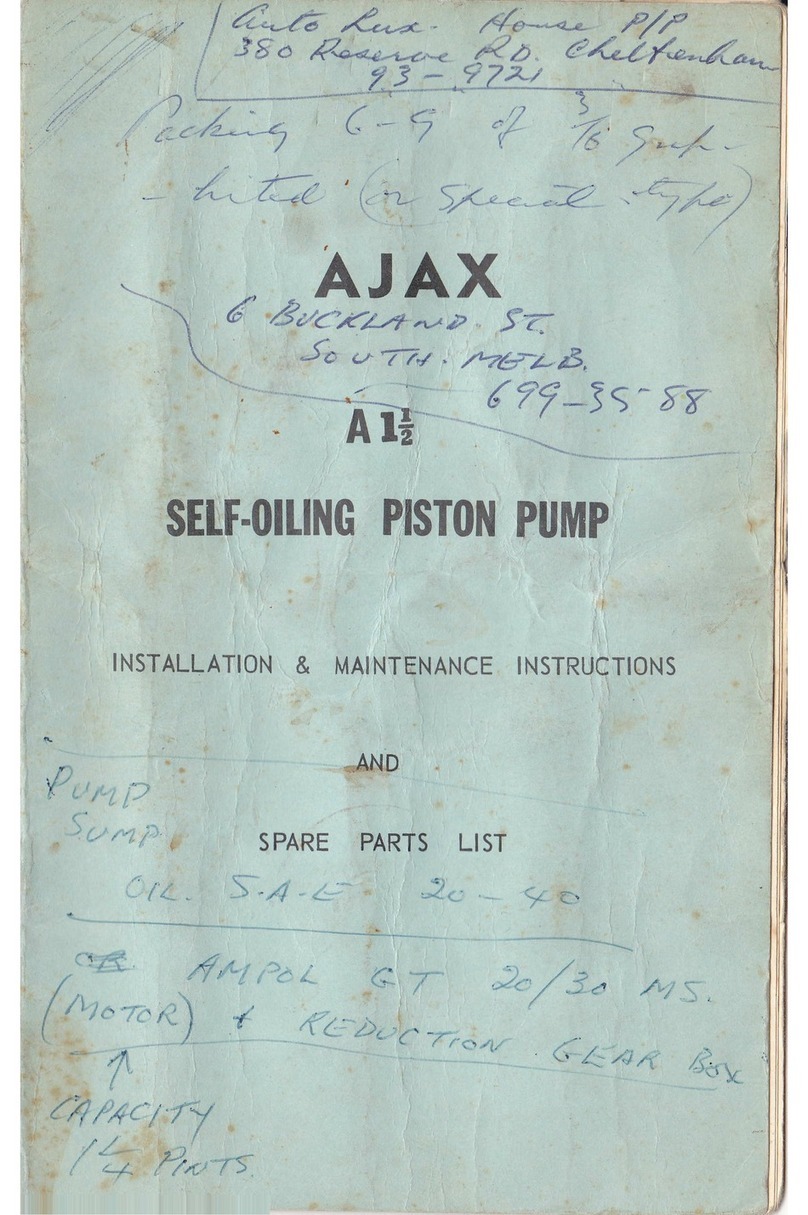 Auto Lux. House P/P
380 Reserve RD. Cheltenham
93-9721
Packing 6-9 of 3/16
(or Special type)
AJAX
6 BUCKLAND ST.
SOUTH. MELB.
699-35-88
A 1½
SELF-OILING PISTON PUMP
INSTALLATION & MAINTENANCE INSTRUCTIONS
AND
PUMP
SUMP
SPARE PARTS LIST
OIL. S.A.E 20-40
OR AMPOL GT 20/30 MS.
(MOTOR) & REDUCTION GEAR BOX
↑
CAPACITY
1¼ PINTS.